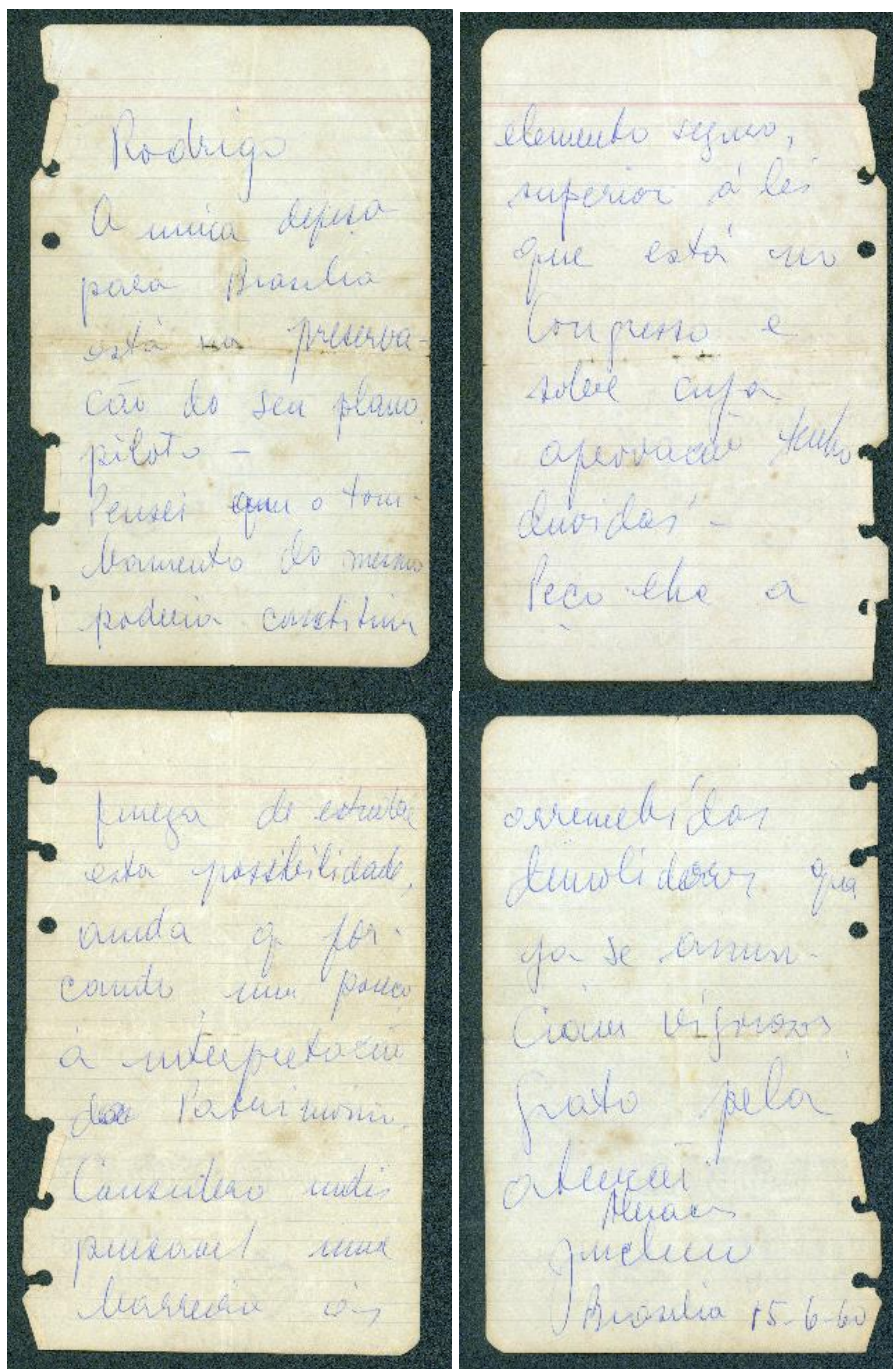 Rodrigo
A unica defesa
para Brasilia
está na preserva-
ção do seu plano
piloto -
Pensei que o tom-
bamento do mesmo
poderia constituir
elemento seguro,
superior á lei
que está no
Congresso e
sobre cuja
aprovação tenho
duvidas -
Peço-lhe a
fineza de estudar
esta possibilidade,
ainda q for-
çando um pouco
á interpretação
do Patrimonio.
Considero indis
pensavel uma
barreira ás
arremetidas
demolidoras que
ja se anun-
ciam vigorosas
Grato pela
atenção
Abraços
Juscelino
Brasilia 15-6-60